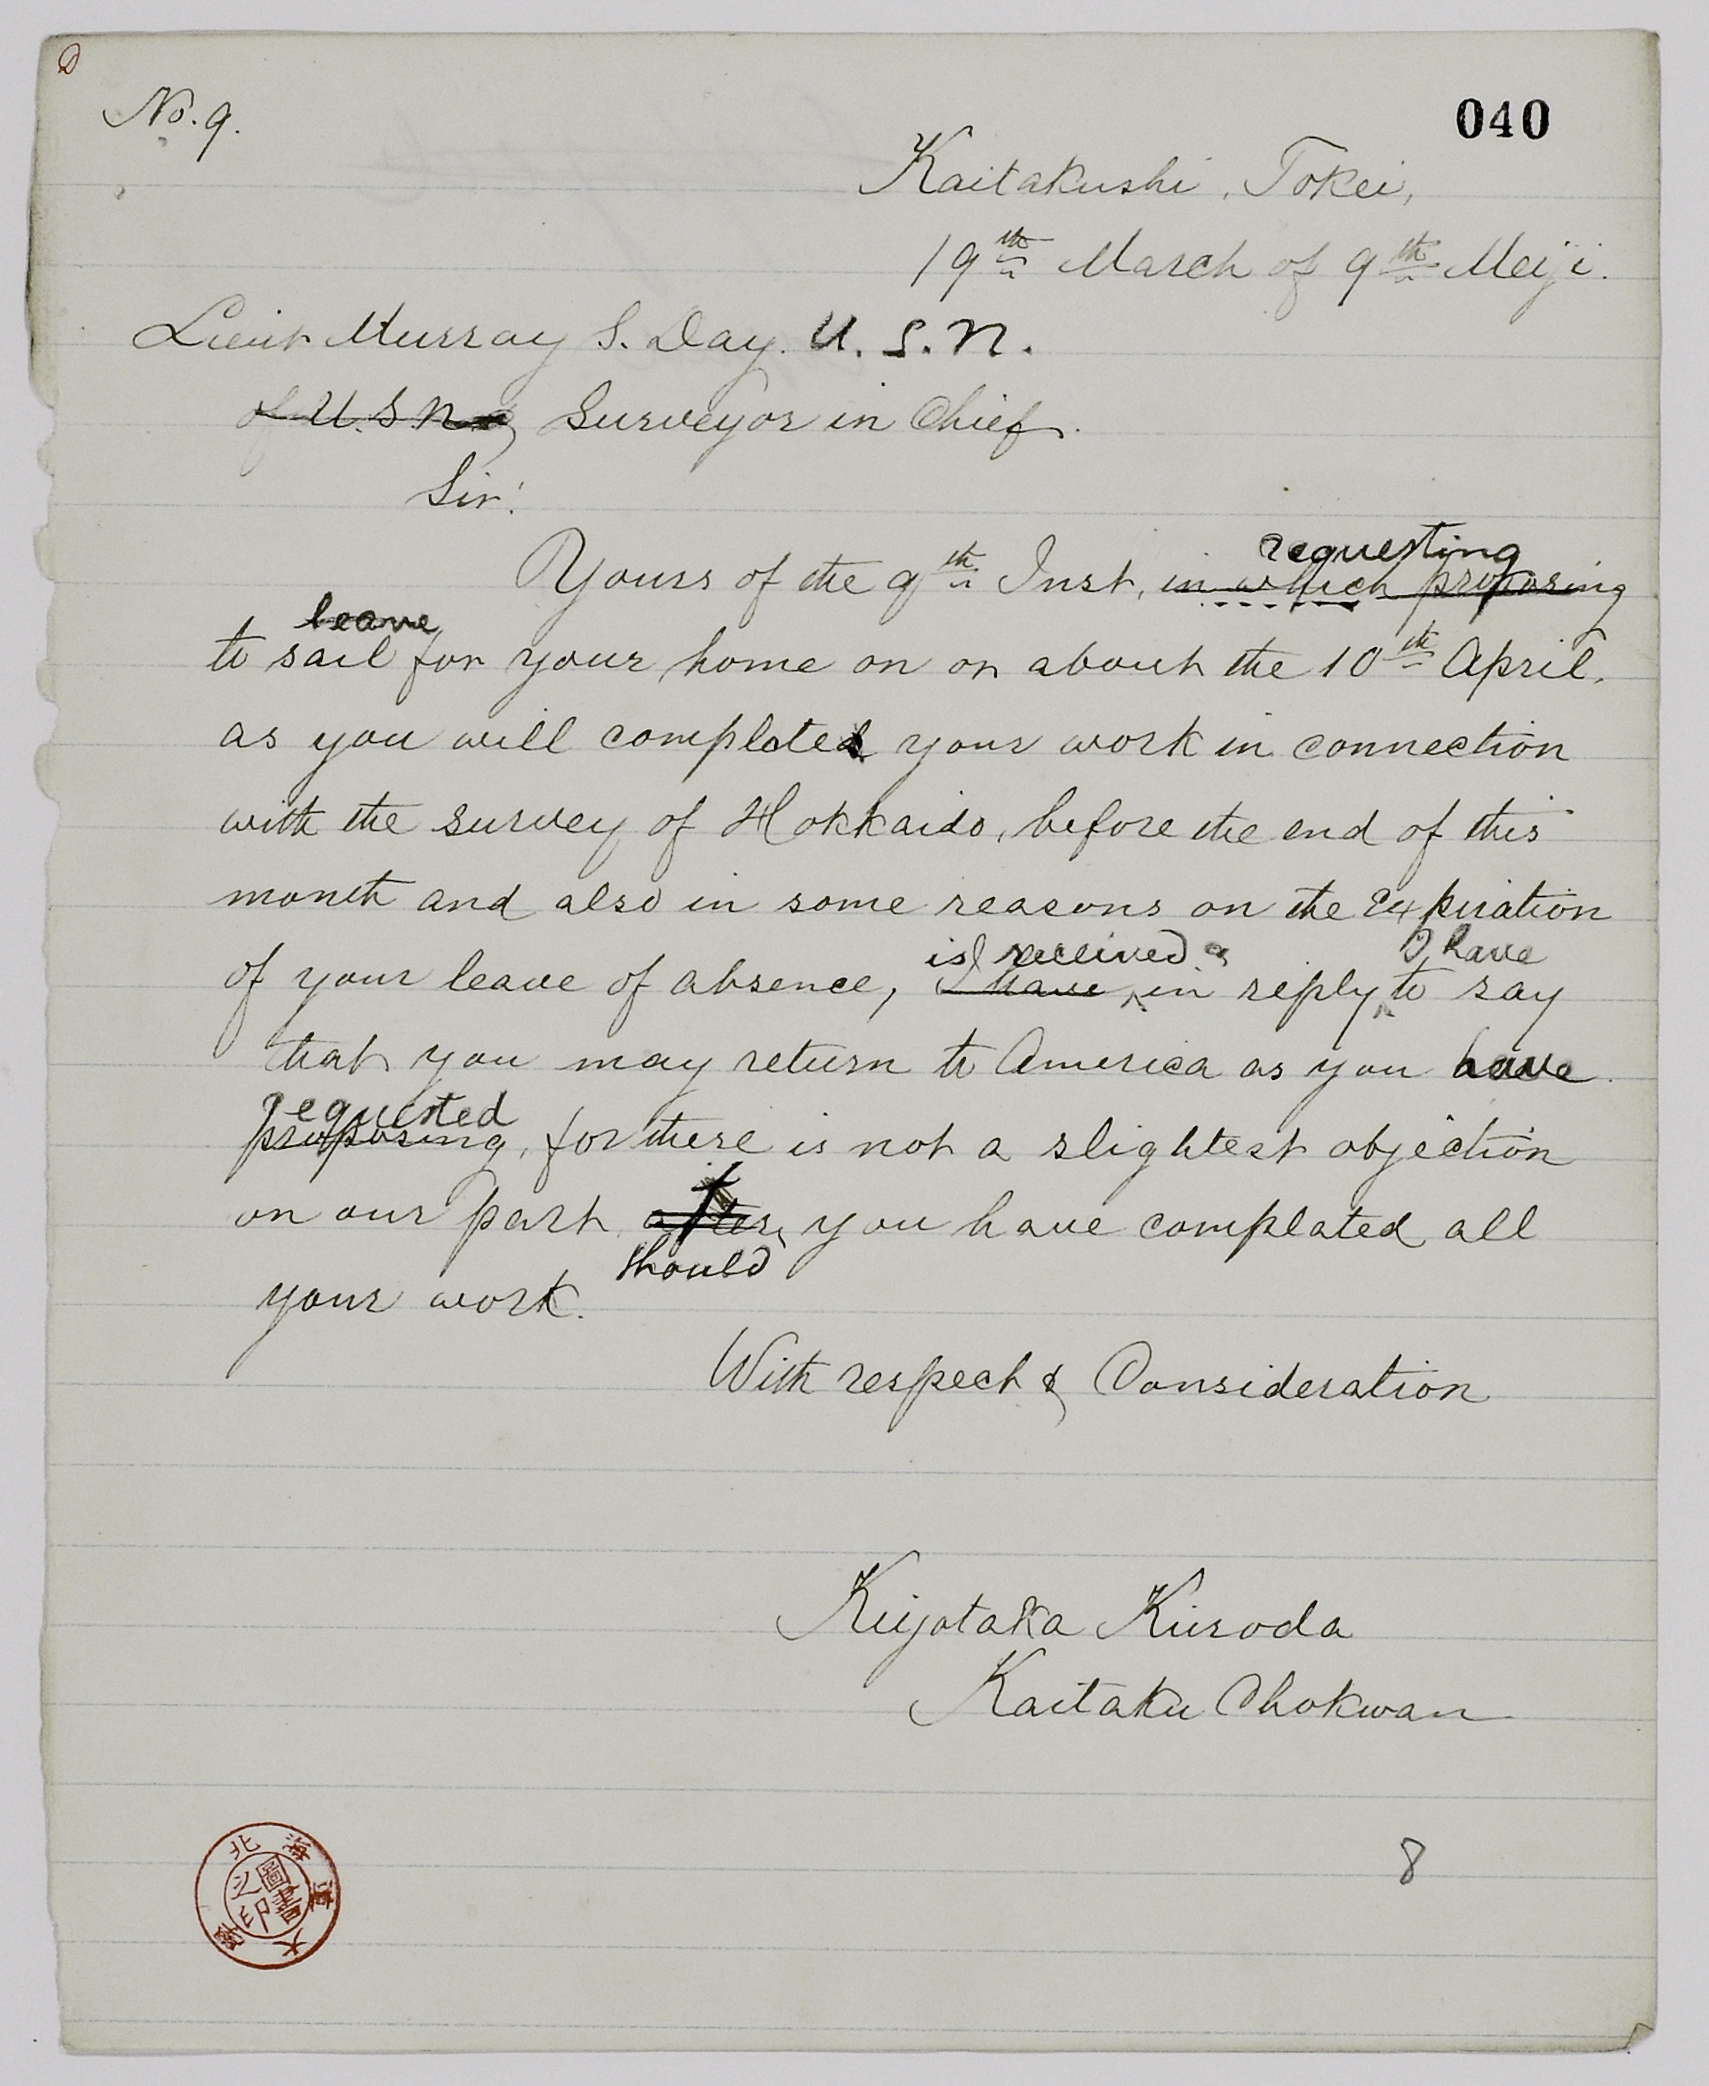 D
No. 9.
040
Kaitakushi, Tokei,
19th March of 9th Meiji.
Lieut Murray S. Day. U. S. N.
of U. S. N., Surveyor in Chief.
Sir!
requesting
Yours of the 9th Inst, in which proposing
leave
to sail for your home on or about the 10th April,
as you will completed your work in connection
with the survey of Hokkaido, before the end of this
month and also in some reasons on the expiration
is received & I have
of your leave of absence, I have, in reply, to say
that you may return to America as you have
requested
proposing, for there is not a slightest objection
on our part after, you have complated all
should
your work.
With respect & Consideration
Kiyotaka Kuroda
Kaitaku Chokwan
8
北海道大學
圖書之印